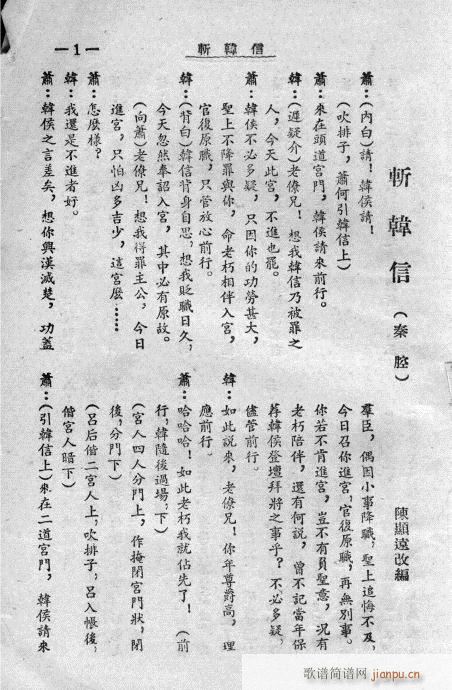 斬韓信
—1—
斬韓信（秦腔）
陳顯遠改編
蕭：（內白）請！韓侯請！
（吹排子，蕭何引韓信上）
蕭：來在頭道宮門，韓侯請來前行。
韓：（遲疑介）老僚兄！想我韓信乃被罪之
人，今天此宮，不進也罷。
蕭：韓侯不必多疑，只因你的功勞甚大，
聖上不降罪與你，命老朽相伴入宮，
官復原職，只管放心前行。
韓：（背白）韓信背身自思，想我貶職日久，
今天忽然奉詔入宮，其中必有原故。
（向蕭）老僚兄！想我得罪主公，今日
進宮，只怕凶多吉少，這宮麽……
蕭：怎麽樣？
韓：我還是不進者好。
蕭：韓侯之言差矣，想你興漢滅楚，功蓋
羣臣，偶因小事降職，聖上追悔不及，
今日召你進宮，官復原職，再無別事。
你若不肯進宮，豈不有負聖意，況有
老朽陪伴，還有何說，曾不記當年保
荐韓侯登壇拜將之事乎？不必多疑，
儘管前行。
韓：如此說來，老僚兄！你年尊爵高，理
應前行。
蕭：哈哈哈！如此老朽我就佔先了！（前
行，韓隨後過場，下）
（宮人四人分門上，作掩閉宮門狀，閉
後，分門下）
（呂后偕二宮人上，吹排子，呂入帳後，
偕宮人暗下）
蕭：（引韓信上）來在二道宮門，韓侯請來
歌谱简谱网
jianpu.cn